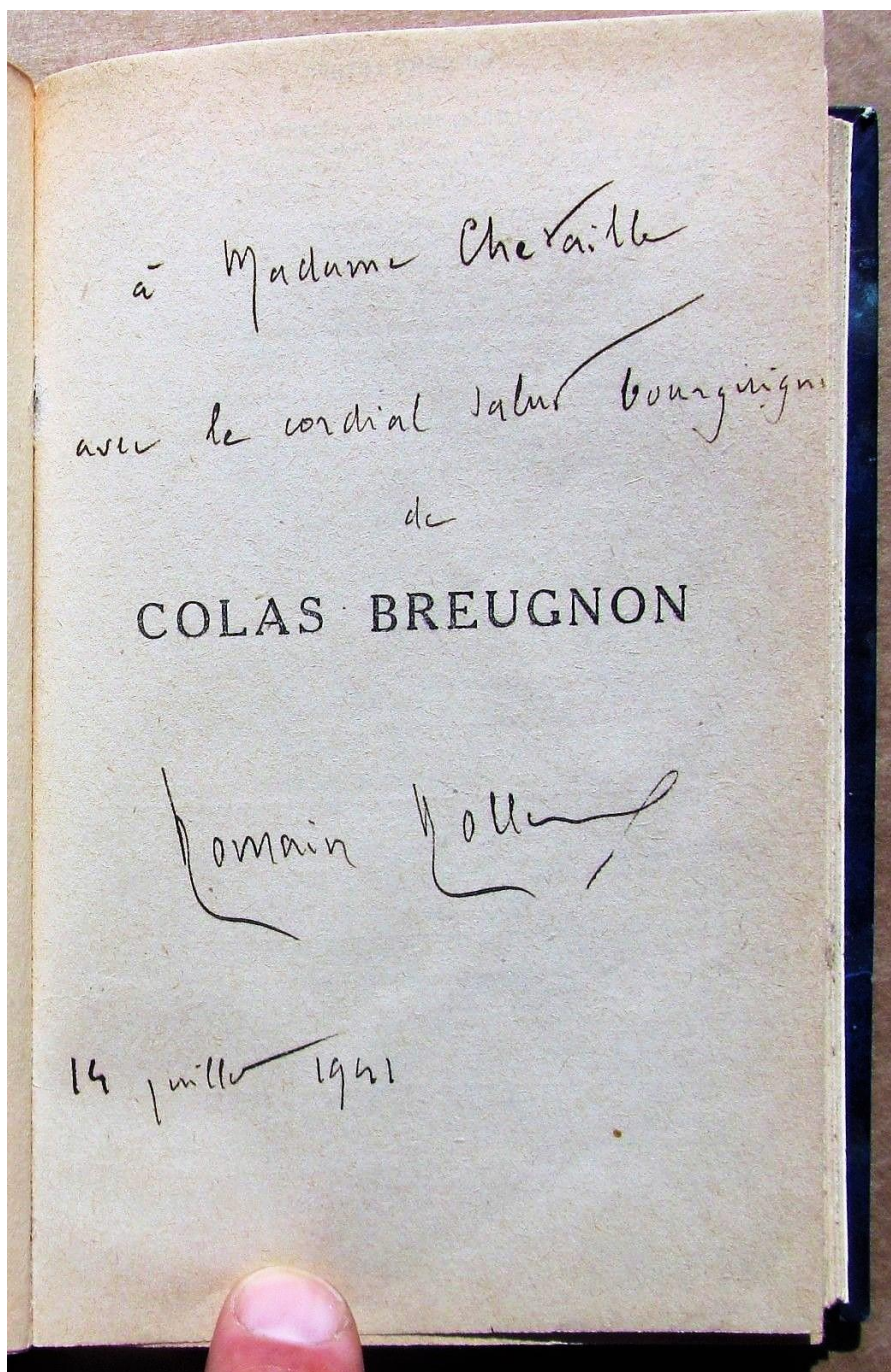 à Madame Chevaille
avec le cordial salut bourguignon
de
COLAS BREUGNON
Romain Rolland
14 juillet 1941